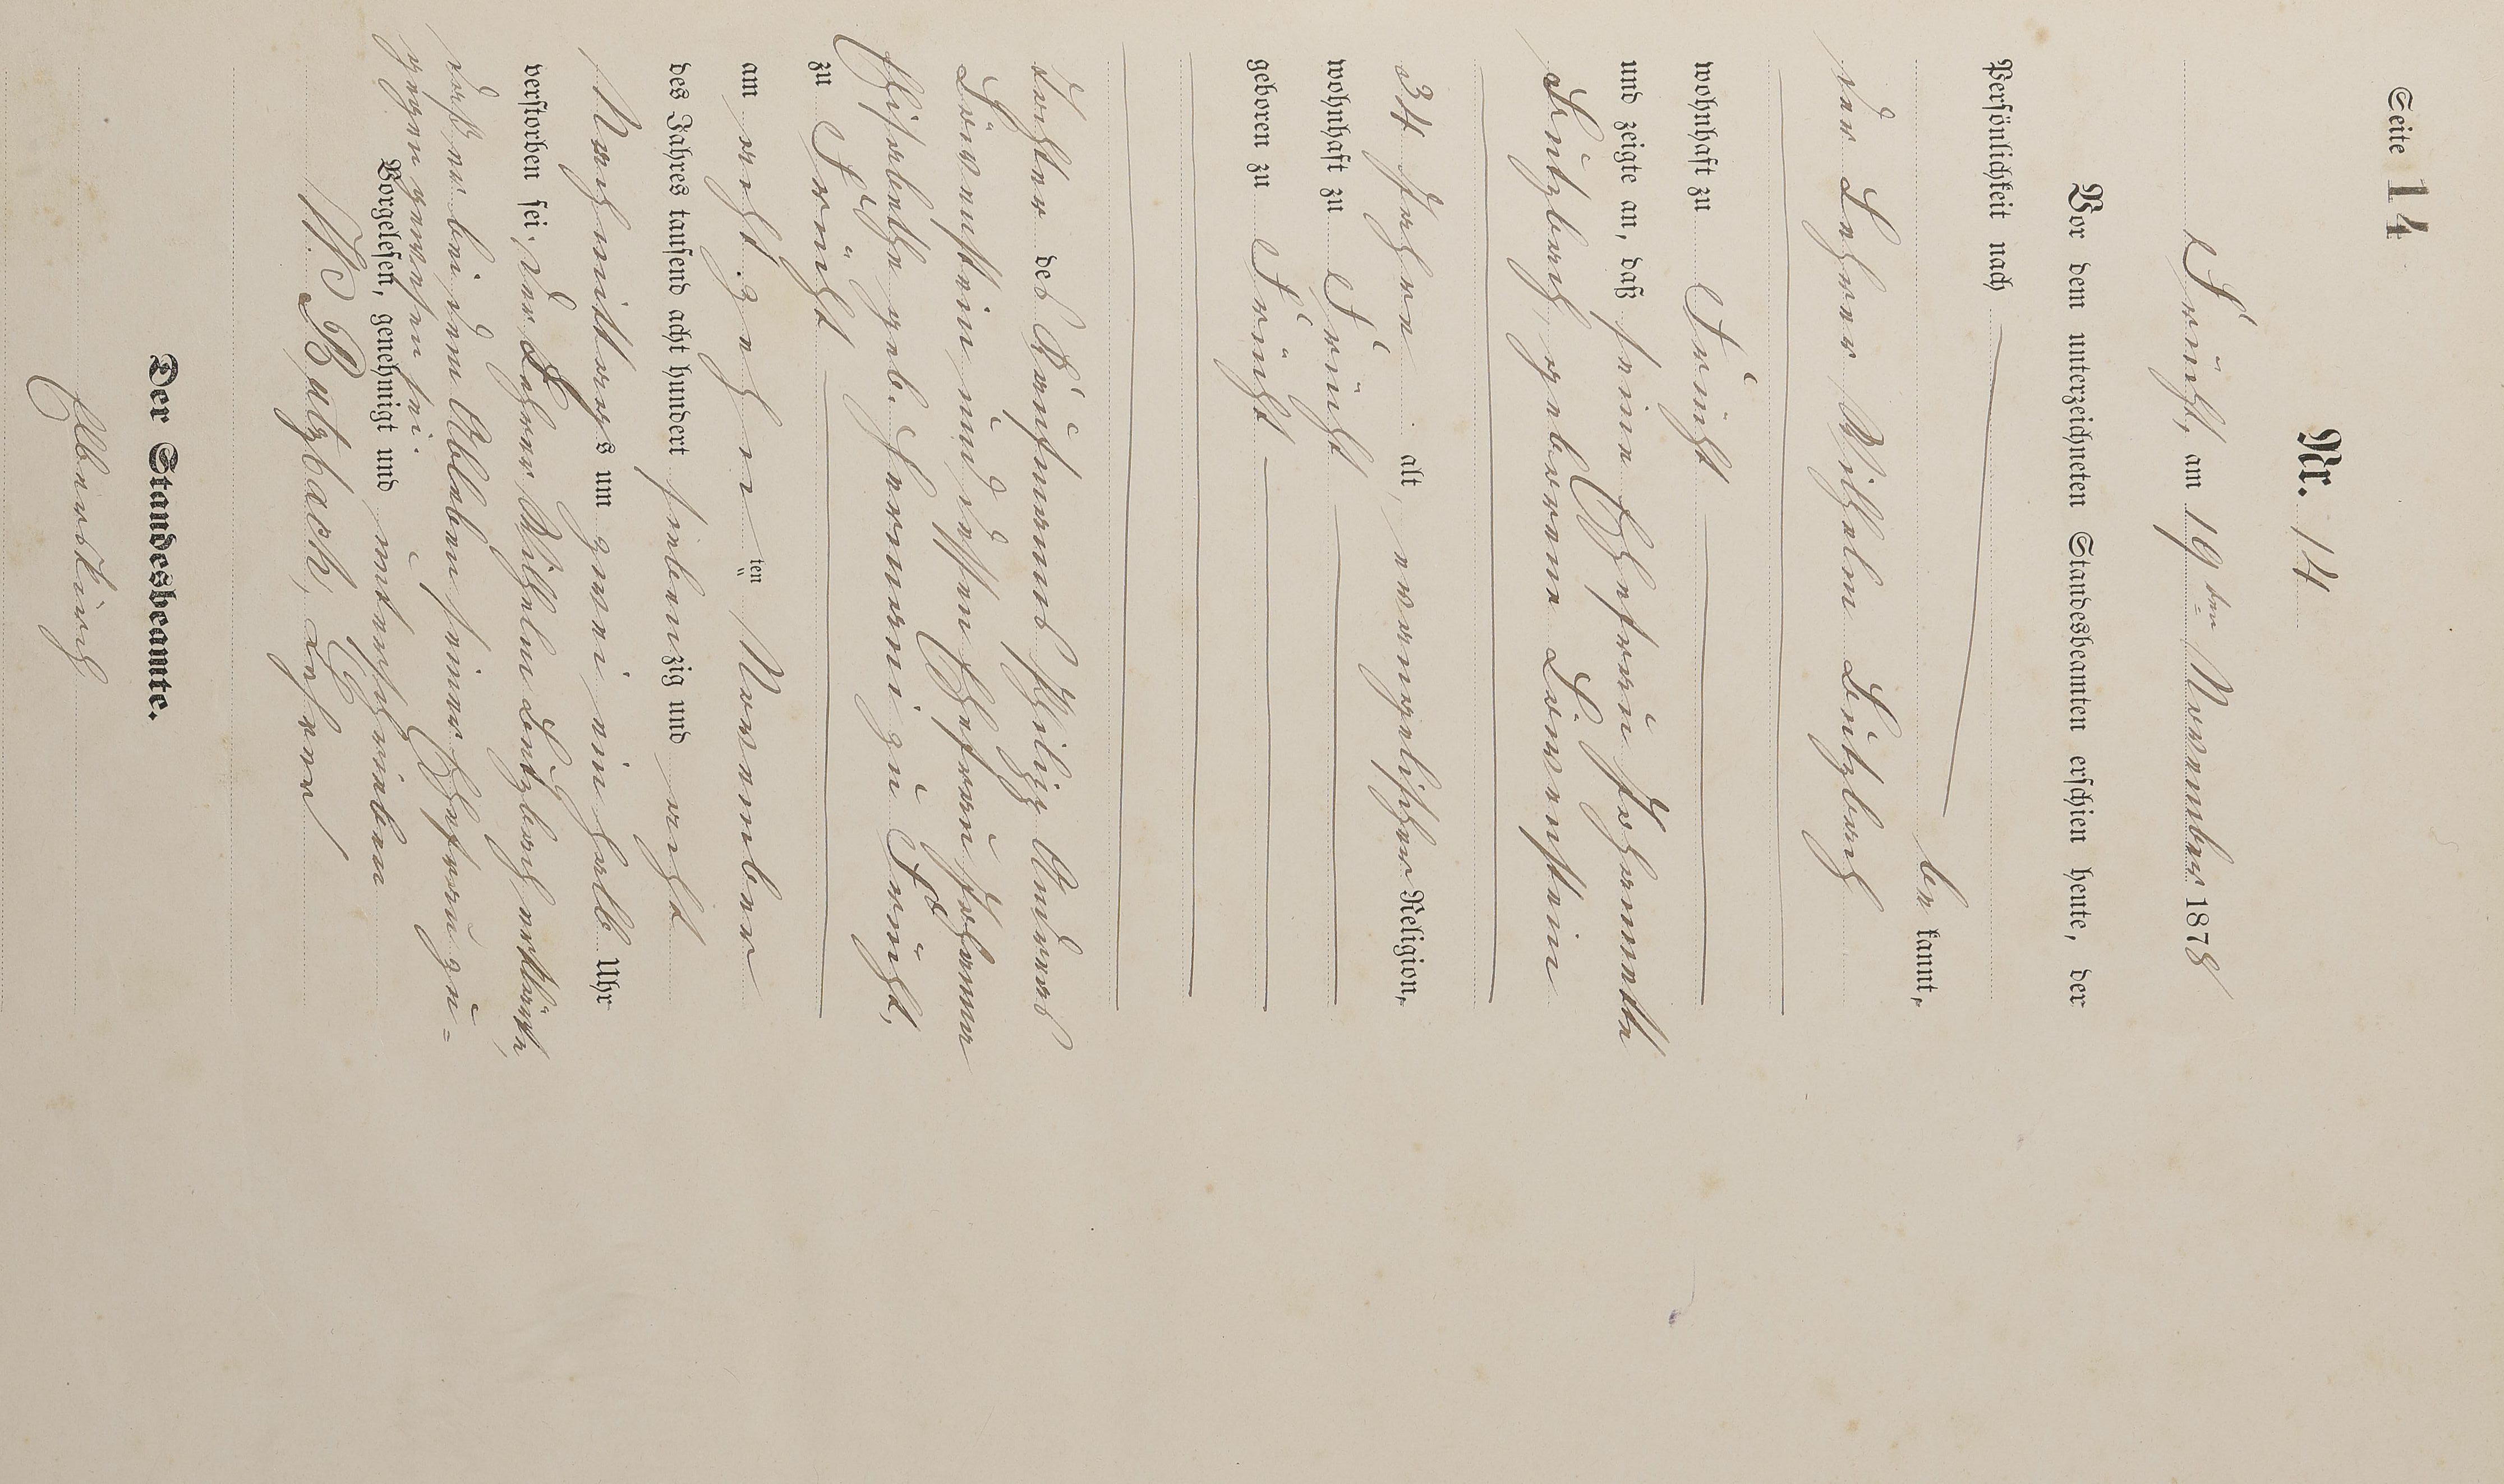 Seite 14
Nr. 14
Frücht, am 19ten November 1878
Vor dem unterzeichneten Standesbeamten erschien heute, der
Persönlichkeit nach
be kannt,
der Lehrer Wilhelm Butzbach
wohnhaft zu Frücht
und zeigte an, daß seine Ehefrau Johannette
Butzbach, geborene Löwenstein
34 Jahre alt, evangelischer Religion,
wohnhaft zu Frücht
geboren zu Frücht
Tochter des Kaufmanns Philipp Andreas
Löwenstein und dessen Ehefrau Johanna
Elisabethe geb. Hermani zu Frücht,
zu Frücht
am acht zehn ten November
des Jahres tausend acht hundert siebenzig und acht
Nachmittags um zwei ein halb Uhr
verstorben sei, der Lehrer Wilhelm Butzbach erklärte,
daß er bei dem Ableben seiner Ehefrau zu-
gegen gewesen sei.
Vorgelesen, genehmigt und unterschrieben
W. Butzbach, Lehrer
Der Standesbeamte.